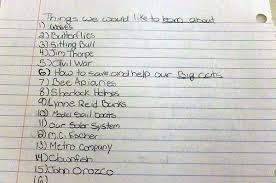 Things we would like to learn about
1) Waves
2) Butterflies
3) Sitting Bull
4) Jim Thorpe
5) Civil War
6) How to save and help our Big cats
7) Bee Apiaries
8) Sherlock Homes
9) Lynne Reid Banks
10) Model Sail boats
11) Our Solar System
12) M.C. Escher
13) Metro Company
14) Clownfish
15) John Orozco
16)